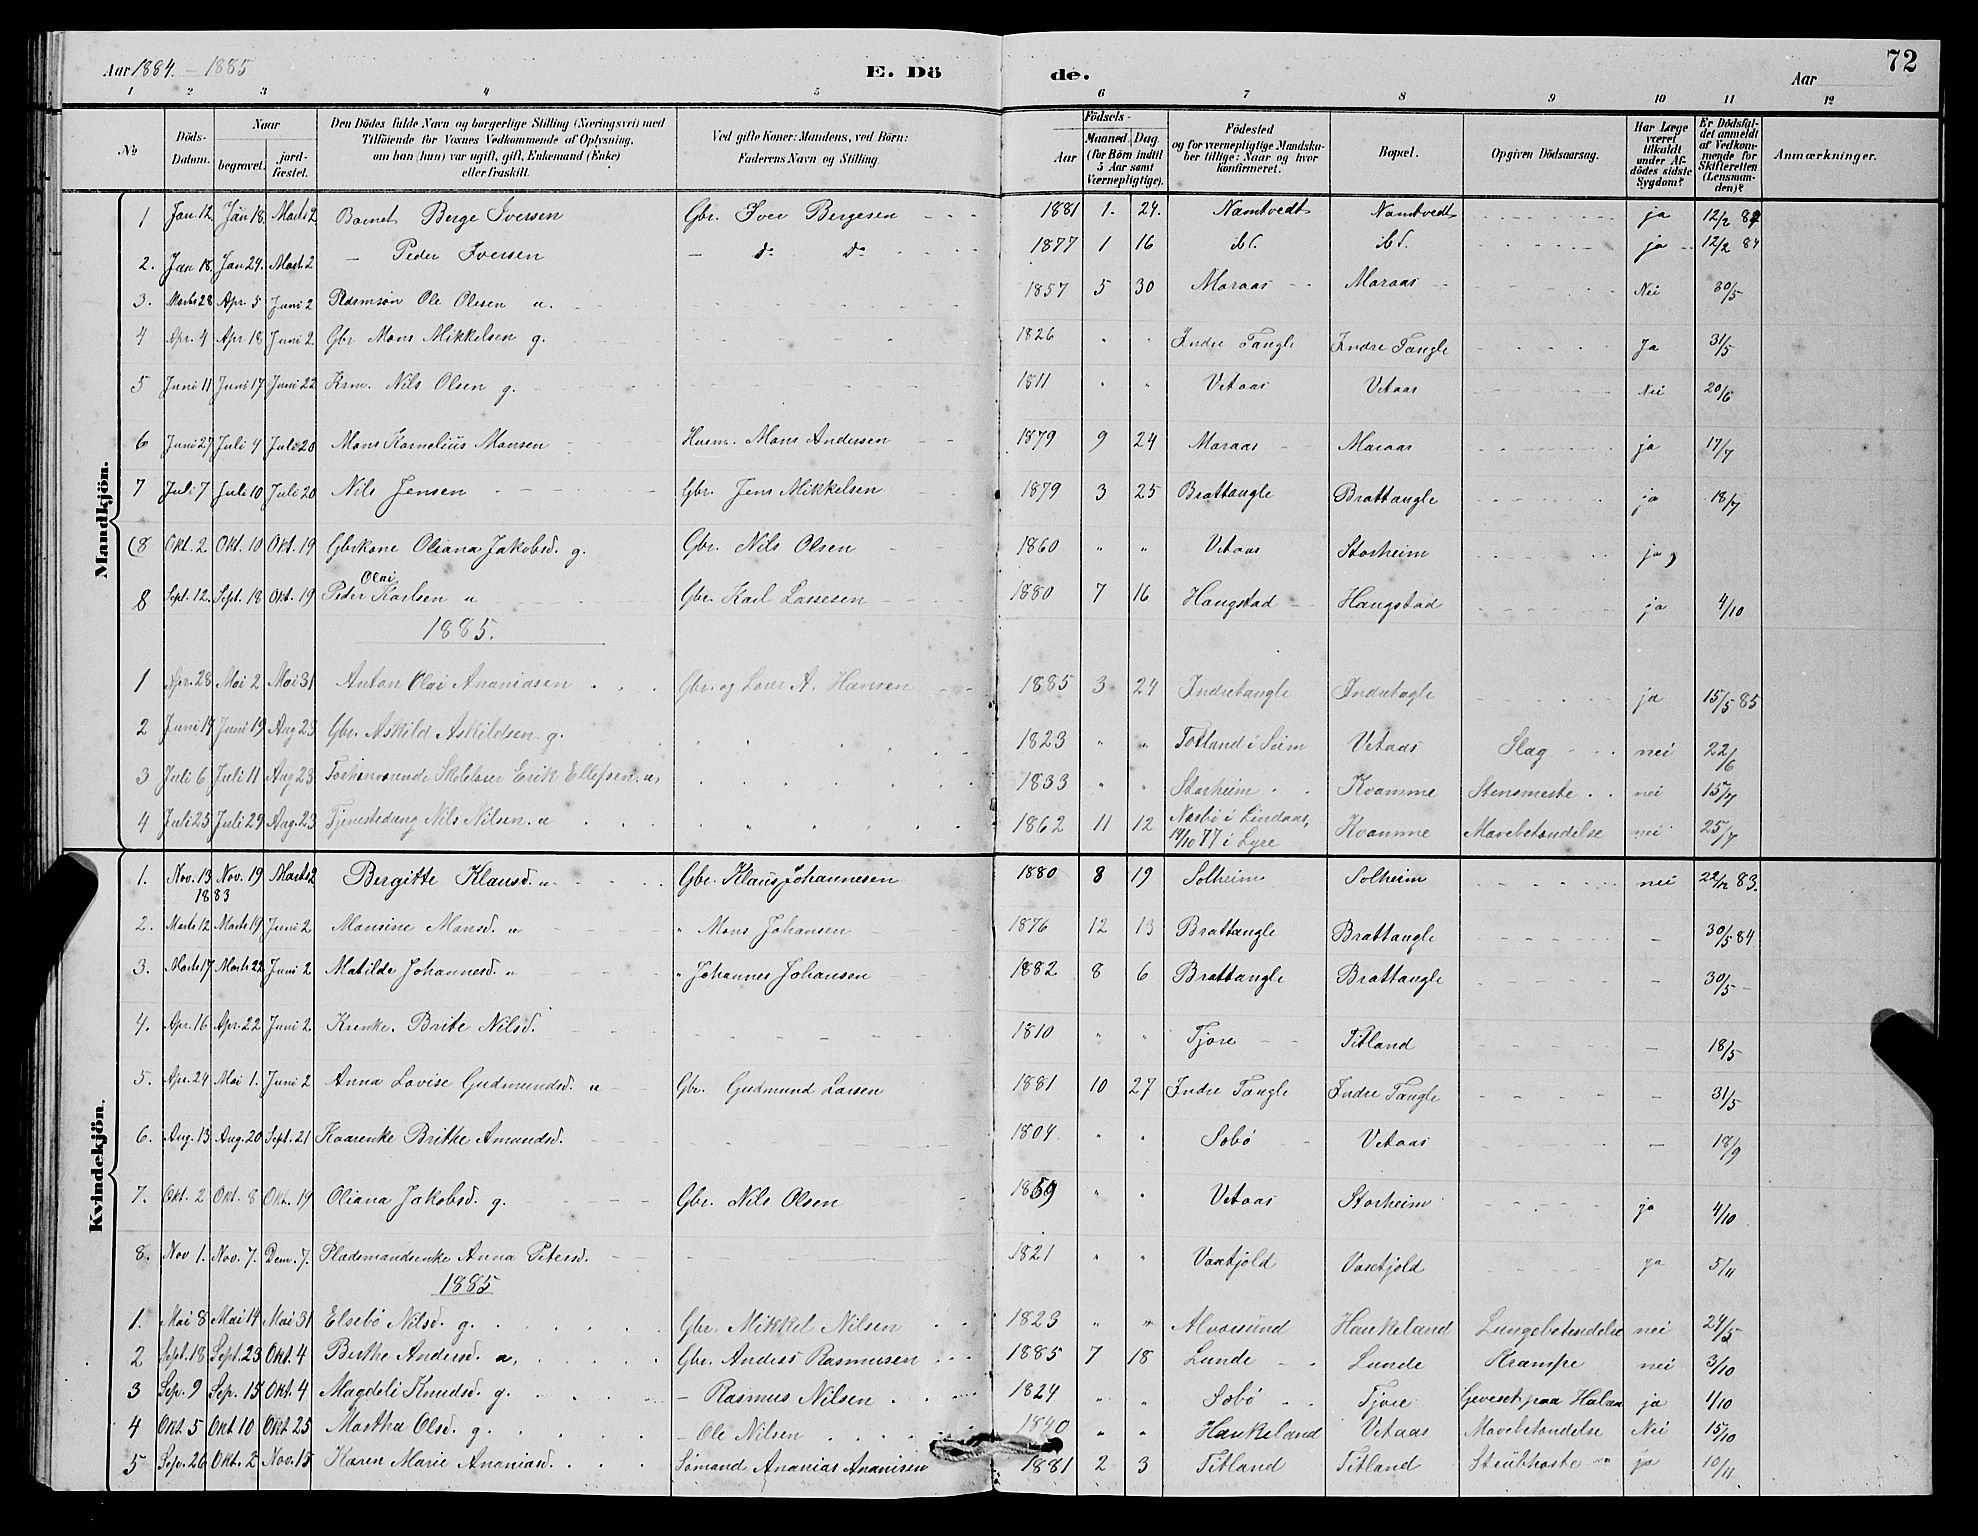 Aar 1884. - 1885 E. Dö de. Aar 72
1 2 3 4 5 6 7 8 9 10 11 12
No Döds-Datum. Naar begravet. jordfæstet. Den Dödes fulde Navn og borgerlige Stilling (Næringsvei) med Tilföiende for Voxnes Vedkommende af Oplysning, om han (hun) var ugift, gift, Enkemand (Enke) eller fraskilt. Ved gifte Koner: Mandens, ved Börn: Faderens Navn og Stilling. Födsels- Aar Maaned. Dag (for Börn indtil 5 Aar samt Værnepligtige). Födested og for værnepligtige Mandskaber tillige: Naar og hvor konfirmeret. Bopæl. Opgiven Dödsaarsag. Har Læge været tilkaldt under Afdödes sidste Sygdom? Er Dödsfaldet anmeldt af Vedkommende for Skifteretten (Lensmanden)? Anmærkninger.
Mandkjön.
1 Jan. 12. Jan 18. Marts 2 Barnet Berge Iversen Gbr. Iver Bergesen 1881 1. 24. Namtvedt Namtvedt ja 12/2 84
2. Jan 18. Jan 24. Mart. 2 — Peder Iversen — do do 1877 1 16 ibd. ibd. ja 12/2 84
3. Marts 28 Apr. 5 Juni 2 Ole Olesen u. 1857 5 30 Maraas Maraas Nei 30/5
4 Apr. 4 Apr 18 Juni 2 Gbr Mons Mikkelsen g. 1826 " " Indre Tangle Indre Tangle Ja 31/5
5 Juni 11 Juni 17 Juni 22 Krm. Nils Olsen g. 1811 " " Vetaas Vetaas Nei 20/6
6 Juni 27 Juli 4 Juli 20 Mons Kornelius Monsen Husm. Mons Andersen 1879 9 24 Maraas Maraas ja 17/7
7 Juli 7 Juli 10 Juli 20 Nils Jensen Gbr. Jens Mikkelsen 1879 3 25 Brattangle Brattangle ja 18/7
(8 Okt. 2. Okt. 10 Okt. 19 Gbrkone Oliana Jakobsd. g. Gbr. Nils Olsen 1860 " " Vetaas Storheim ja)
8 Sept. 12. Sept. 18 Okt. 19 Peder Olai Karlsen u Gbr. Karl Lassesen 1880 7 16 Haugstad Haugstad ja 4/10
1885.
1 Apr. 28 Mai 2 Mai 31 Anton Olai Ananiasen Gbr. og Losex A. Hansen 1885 3 24 Indretangle Indretagle ja 15/5 85
2 Juni 14 Juni 19 Aug 23 Gbr. Askild Askildsen g. 1823 " " Totland i Seim Vetaas Slag nei 22/6
3 Juli 6 Juli 11 Aug 23 Skolelærer Erik Ellefsen. u, 1833 " " Storheim Kvamme Stensmerte nei 15/7
4 Juli 25 Juli 29 Aug. 23 Tjenestedreng Nils Nilsen. u 1862 11 12 Nosbö i Lindaas, 14/10 77 i Lyre Kvamme Mavebetændelse nei 25/7
Kvindekjön.
1. Nov. 13 1883 Nov. 19 Marts 2 Bergitte Klausd. u Gbr. Klaus Johannesen 1880 8 19 Solheim Solheim nei 22/12 83.
2. Marts 12 Marts 19 Juni 2 Monsine Monsd. u " Mons Johansen 1876 12 13 Brattangle Brattangle — 30/5 84
3. Marts 17 Marts 22 Juni 2 Matilde Johannesd. " " Johannes Johansen 1882 8 6 Brattangle Brattangle — 30/5
4. Apr. 16 Apr. 22 Juni 2 Krenke. Brite Nilsd. 1810 " " Tjore Titland — 18/5
5. Apr. 24 Mai 1. Juni 2 Anna Lovise Gudmundsd. u Gbr. Gudmund Larsen 1881 10 27 Indre Tangle Indre Tangle — 31/5
6. Aug. 13 Aug. 20 Sept. 21 Kaarenke Brithe Amundsd. 1804 " " Sobö Vetaas — 18/9
7. Okt. 2 Okt. 8 Okt. 19 Oliana Jakobsd. g. Gbr. Nils Olsen 1859 " " Vetaas Storheim ja 4/10
8. Nov 1. Nov. 7. Dem. 7. Pladsmandsenke Anna Petersd. 1821 " " Vaxtjold Vaxtjold ja 5/11
1885
1. Mai 8 Mai 14 Mai 31 Elsebö Nilsd. g. Gbr. Mikkel Nilsen 1823 " " Alversund Haukeland Lungebetendelse nei 24/5
2 Sept. 18 Sept. 23 Okt. 4 Birthe Andersd. u, Gbr. Anders Rasmusen 1885 7 18 Lunde Lunde Krampe nei 3/10
3 Sep. 9 Sep. 15 Okt. 4 Magdeli Knudsd. g. — Rasmus Nilsen 1824 " " Sobö Tjore paa Halsen ja 1/10
4 Okt. 5 Okt 10 Okt 25 Martha Olsd. g. — Ole Nilsen 1840 " " Haukeland Vetaas Mavebetændelse Nei 15/10
5 Sep. 26 Okt. 2 Nov. 15 Karen Marie Ananiasd. Sømand Ananias Ananisen 1881 2 3 Titland Titland Strubhoste ja 10/11